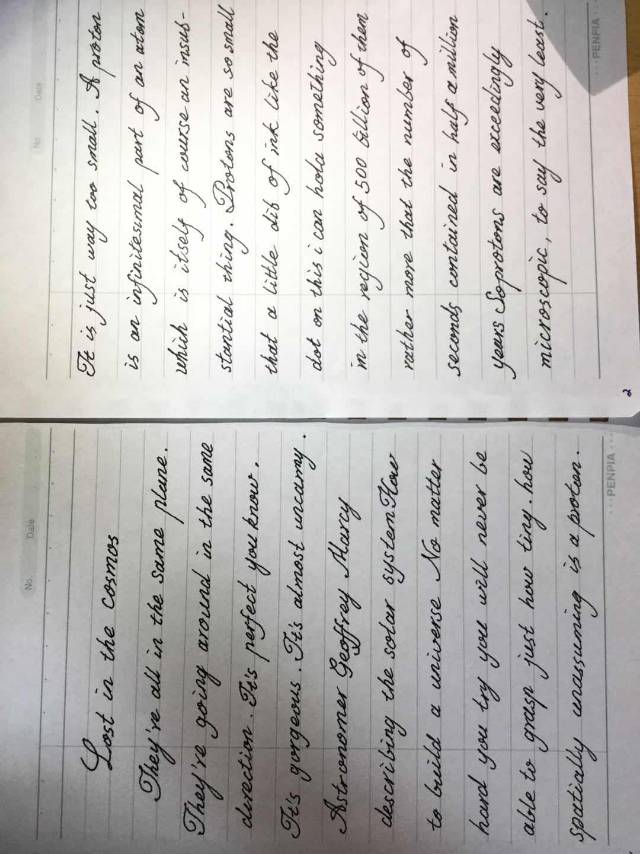 No.
Date
Lost in the cosmos
They're all in the same plane.
They're going around in the same
direction. It's perfect you know.
It's gorgeous. It's almost uncanny.
Astronomer Geoffrey Marcy
describing the solar system How
to build a universe No matter
hard you try you will never be
able to grasp just how tiny. how
spatially unassuming is a proton.
PENPIA
No
Date
It is just way too small. A proton
is an infinitesimal part of an atom
which is itself of course an insub-
stantial thing. Protons are so small
that a little dib of ink like the
dot on this i can hold something
in the region of 500 billion of them
rather more that the number of
seconds contained in half a million
years So protons are exceedingly
microscopic, to say the very least.
PENPIA
2